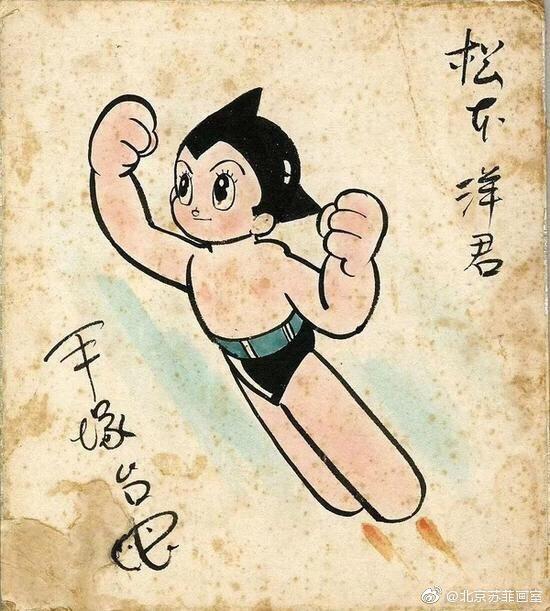 松本洋君
手塚治虫
@北京苏菲画室